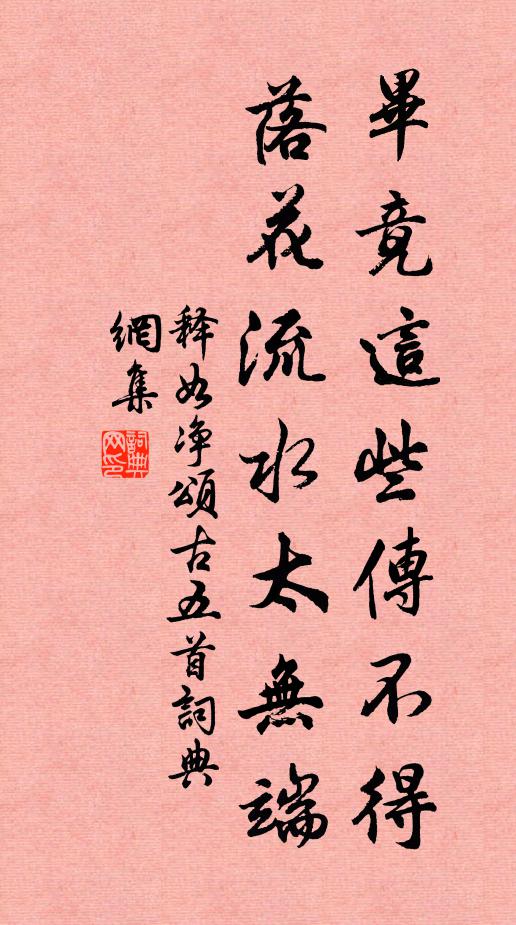 畢竟這些傳不得
落花流水太無端
释如净頌古五首詞典
網集
詞典網印